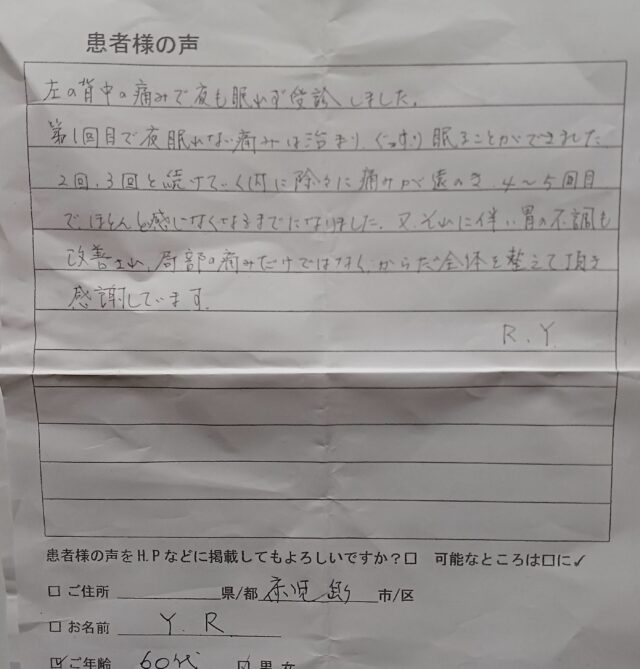 患者様の声
左の背中の痛みで夜も眠れず受診しました。
第1回目で夜眠れない痛みは治まり、ぐっすり眠ることができました。
2回、3回と続けていく内に除々に痛みが遠のき、4〜5回目
で、ほとんど感じなくなるまでになりました。又、それに伴い胃の不調も
改善され、局部の痛みだけではなく、からだ全体を整えて頂き
感謝しています。
R.Y.
患者様の声をH.Pなどに掲載してもよろしいですか?□ 可能なところは□に✓
□ご住所 県/都 市/区
□お名前 Y.R
☑ご年齢 60代 ☑男 女